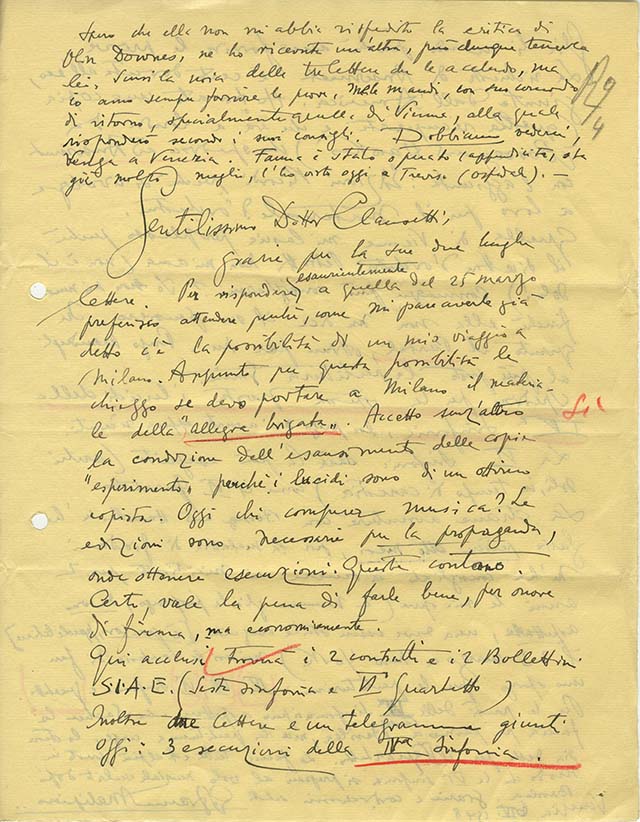 Spero che ella non mi abbia rispedito la critica di
Olin Downes, ne ho ricevuta un'altra, può dunque tenersela
lei. Scusi la noia delle tre lettere che le accludo, ma
io amo sempre fornire le prove, me le mandi, con suo comodo
di ritorno, specialmente quella di Vienna, alla quale
risponderò secondo i suoi consigli. Dobbiamo vederci,
venga a Venezia. Fanna è stato operato (appendicite), sta
già molto meglio, l'ho visto oggi a Treviso (ospedale). —
19/4
Gentilissimo Dottor Clausetti,
grazie per la sue due lunghe
lettere. Per rispondere esaurientemente a quella del 25 marzo
preferisco attendere perché, come mi pare averle già
detto c'è la possibilità di un mio viaggio a
Milano. Appunto per questa possibilità le
chieggo se devo portare a Milano il materia-
le della "allegra brigata". Accetto senz'altro Sì
la condizione dell'esaurimento delle copie
"esperimento", perchè i lucidi sono di un ottimo
copista. Oggi chi compera musica? Le
edizioni sono necessarie per la propaganda,
onde ottenere esecuzioni. Queste contano.
Certo, vale la pena di farle bene, per onore
di firma, ma economicamente.
Qui acclusi troverà i 2 contratti e i 2 Bollettini
S.I.A.E. (Sesta sinfonia e VI Quartetto)
Inoltre due lettere e un telegramma giunti
oggi: 3 esecuzioni della IVa Sinfonia.